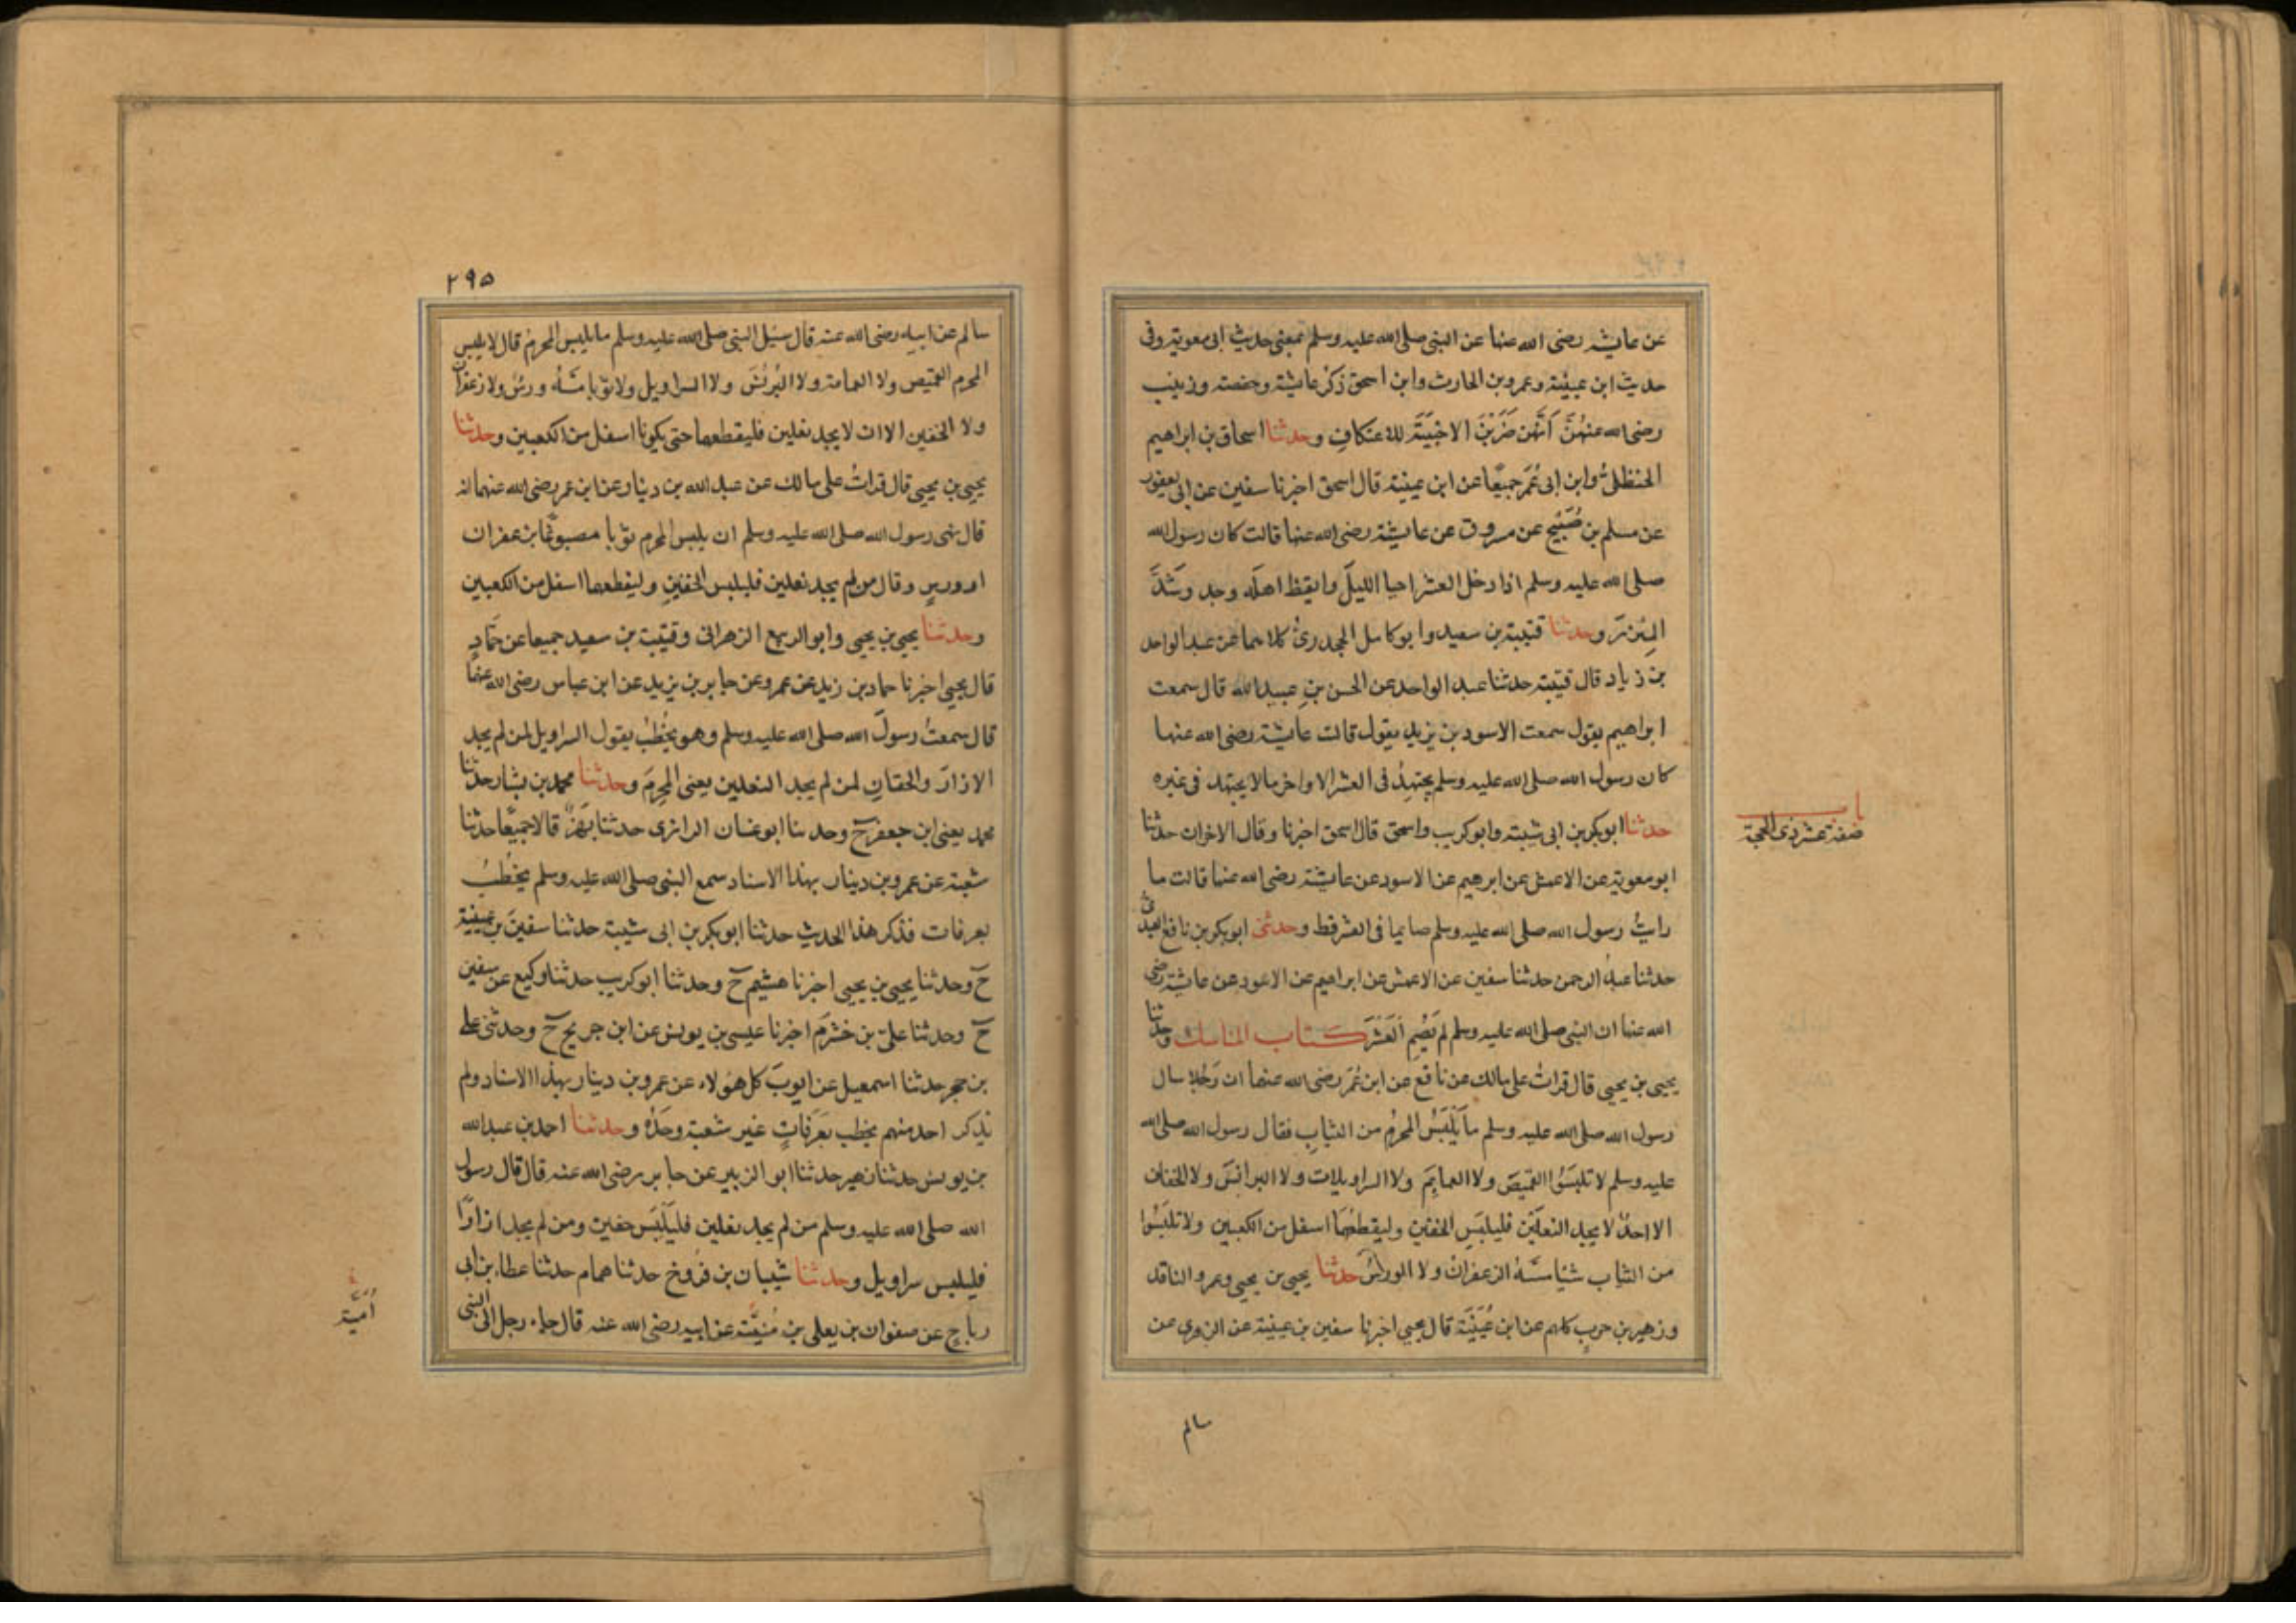 عن عايشه رضى الله عنها عن النبى صلى الله عليه وسلم بمعنى حديث ابى معوية وفى
حديث ابن عيينة وعمرو بن الحارث وابن اسحق ذكر عايشة وحفصة وزينب
رضى الله عنهن أنهن ضربن الاخبية للاعتكاف وحدثنا اسحاق بن ابراهيم
الحنظلى وابن ابى عمر جميعا عن ابن عيينة قال اسحق اخبرنا سفين عن ابى يعفور
عن مسلم بن صبيح عن مسروق عن عايشة رضى الله عنها قالت كان رسول الله
صلى الله عليه وسلم اذا دخل العشر احيا الليل وايقظ اهله وجد وشد
المئزر وحدثنا قتيبة بن سعيد وابو كامل الجحدرى كلاهما عن عبد الواحد
بن زياد قال قتيبة حدثنا عبد الواحد عن الحسن بن عبيد الله قال سمعت
ابراهيم يقول سمعت الاسود بن يزيد يقول قالت عايشة رضى الله عنها
كان رسول الله صلى الله عليه وسلم يجتهد فى العشر الاواخر مالا يجتهد فى غيره
حدثنا ابوبكر بن ابى شيبة وابو كريب واسحق قال اسحق اخبرنا وقال الاخران حدثنا
باب
صفة عشر ذى الحجة
ابو معوية عن الاعمش عن ابرهيم عن الاسود عن عايشة رضى الله عنها قالت ما
رايت رسول الله صلى الله عليه وسلم صايما فى العشر قط وحدثنى ابوبكر بن نافع العبدى
حدثنا عبد الرحمن حدثنا سفين عن الاعمش عن ابراهيم عن الاسود عن عايشة رضى
الله عنها ان النبى صلى الله عليه وسلم لم يصم العشر كتاب المناسك وحدثنا
يحيى بن يحيى قال قرات على مالك عن نافع عن ابن عمر رضى الله عنهما ان رجلا سال
رسول الله صلى الله عليه وسلم ما يلبس المحرم من الثياب فقال رسول الله صلى الله
عليه وسلم لا تلبسوا القميص ولا العمايم ولا السراويلات ولا البرانس ولا الخفاف
الا احد لا يجد النعلين فليلبس الخفين وليقطعهما اسفل من الكعبين ولا تلبسوا
من الثياب شيا مسه الزعفران ولا الورس حدثنا يحيى بن يحيى وعمرو الناقد
وزهير بن حرب كلهم عن ابن عيينة قال يحيى اخبرنا سفين بن عيينة عن الزهرى عن
سالم
٢٩٥
سالم عن ابيه رضى الله عنه قال سئل النبى صلى الله عليه وسلم ما يلبس المحرم قال لا يلبس
المحرم القميص ولا العمامة ولا البرنس ولا السراويل ولا ثوبا مسه ورس ولا زعفران
ولا الخفين الا ان لا يجد نعلين فليقطعهما حتى يكونا اسفل من الكعبين وحدثنا
يحيى بن يحيى قال قرات على مالك عن عبد الله بن دينار عن ابن عمر رضى الله عنهما انه
قال نهى رسول الله صلى الله عليه وسلم ان يلبس المحرم ثوبا مصبوغا بزعفران
او ورس وقال من لم يجد نعلين فليلبس الخفين وليقطعهما اسفل من الكعبين
وحدثنا يحيى بن يحيى وابو الربيع الزهرانى وقتيبة بن سعيد جميعا عن حماد
قال يحيى اخبرنا حماد بن زيد عن عمرو عن جابر بن يزيد عن ابن عباس رضى الله عنهما
قال سمعت رسول الله صلى الله عليه وسلم وهو يخطب يقول السراويل لمن لم يجد
الازار والخفان لمن لم يجد النعلين يعنى المحرم وحدثنا محمد بن بشار حدثنا
محمد يعنى ابن جعفر ح وحدثنا ابو غسان الرازى حدثنا بهز قالا جميعا حدثنا
شعبة عن عمرو بن دينار بهذا الاسناد سمع النبى صلى الله عليه وسلم يخطب
بعرفات فذكر هذا الحديث حدثنا ابوبكر بن ابى شيبة حدثنا سفين بن عيينة
ح وحدثنا يحيى بن يحيى اخبرنا هشيم ح وحدثنا ابو كريب حدثنا وكيع عن سفين
ح وحدثنا على بن خشرم اخبرنا عيسى بن يونس عن ابن جريج ح وحدثنى على
بن حجر حدثنا اسمعيل عن ايوب كل هؤلاء عن عمرو بن دينار بهذا الاسناد ولم
يذكر احد منهم يخطب بعرفات غير شعبة وحده وحدثنا احمد بن عبد الله
بن يونس حدثنا زهير حدثنا ابو الزبير عن جابر رضى الله عنه قال قال رسول
الله صلى الله عليه وسلم من لم يجد نعلين فليلبس خفين ومن لم يجد ازارا
فليلبس سراويل وحدثنا شيبان بن فروخ حدثنا همام حدثنا عطاء بن ابى
رباح عن صفوان بن يعلى بن منية عن ابيه رضى الله عنه قال جاء رجل الى النبى
أمية